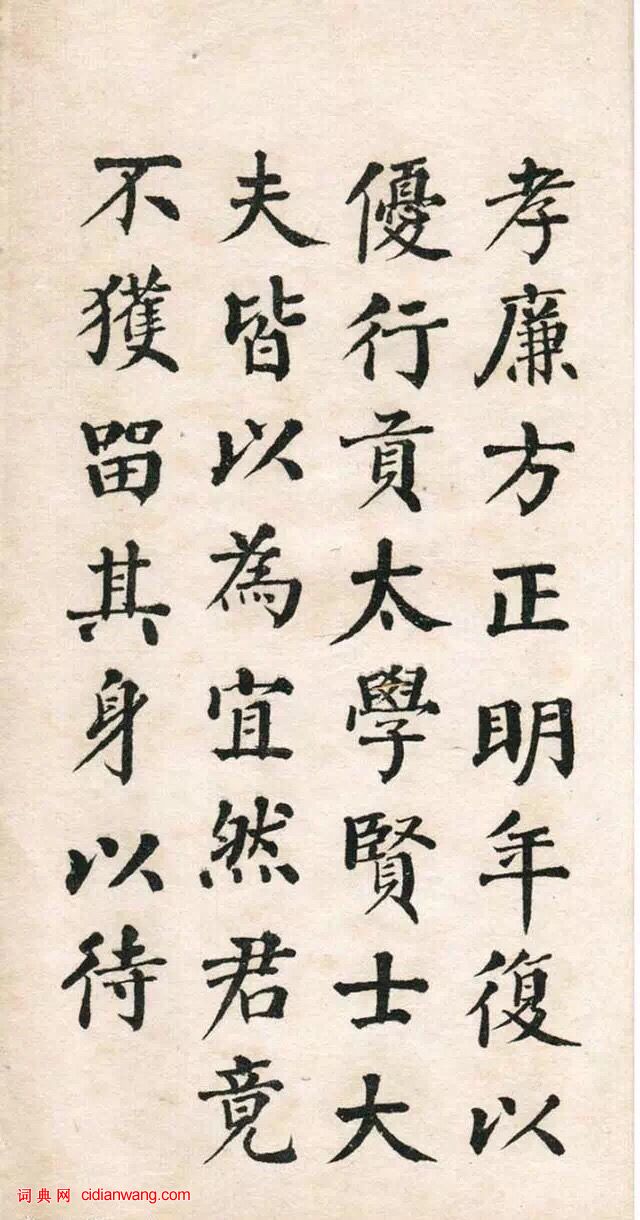 孝廉方正明年復以
優行貢太學賢士大
夫皆以為宜然君竟
不獲留其身以待
词典网 cidianwang.com